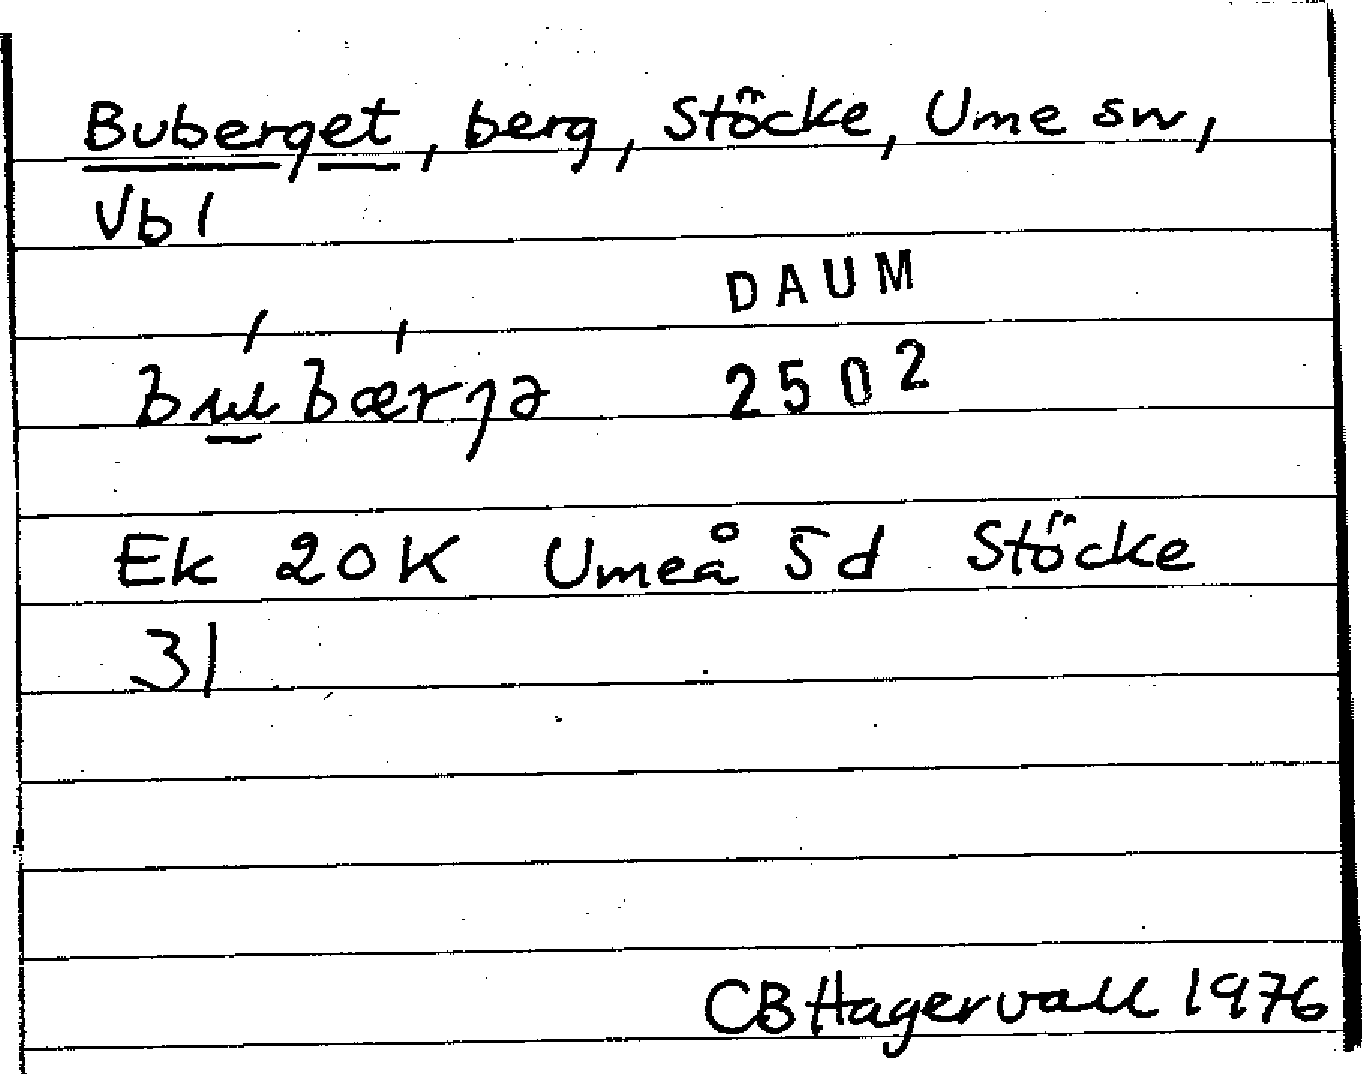 Buberget, berg, Stöcke, Ume sn,
Vb l
DAUM
2502
Ek 20K Umeå Sd Stöcke
31
CBHagervall 1976